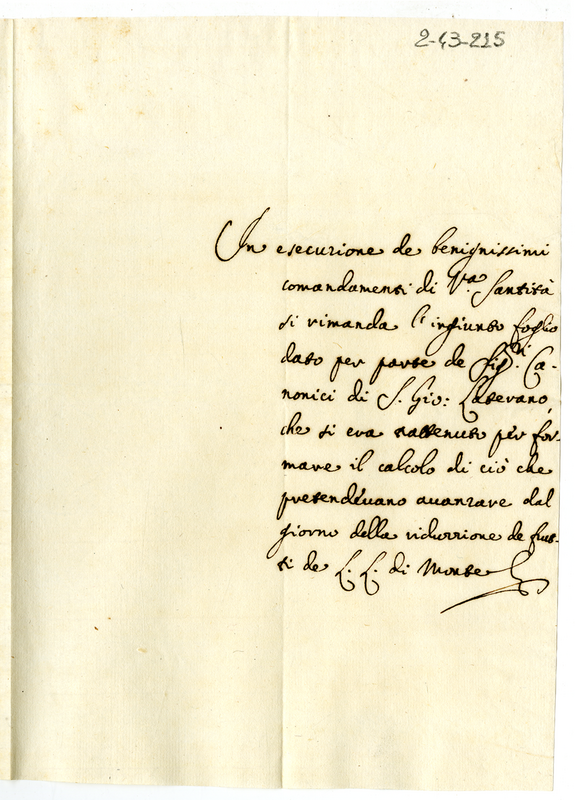 2-43-215
In esecuzione de benignissimi
comandamenti di V.ra Santità
si rimanda l'ingiunto foglio
dato per parte de Sig.ri Ca-
nonici di S. Gio: Laterano,
che si era rattenuto per for-
mare il calcolo di ciò che
pretendevano avanzare dal
giorno della riduzzione de frut-
ti de L. L. di Monte